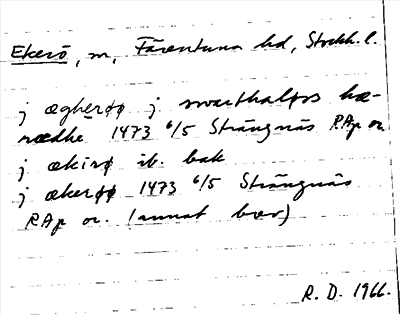 Ekerö, sn, Färentuna hd, Stockh. l.
j ægherøø j swarthaløss hæ-
rædhe 1473 6/5 Strängnäs RAp or
j ækirø ib. bak
j ækerøø 1473 6/5 Strängnäs
RAp or. (annat brev)
R. D. 1966.